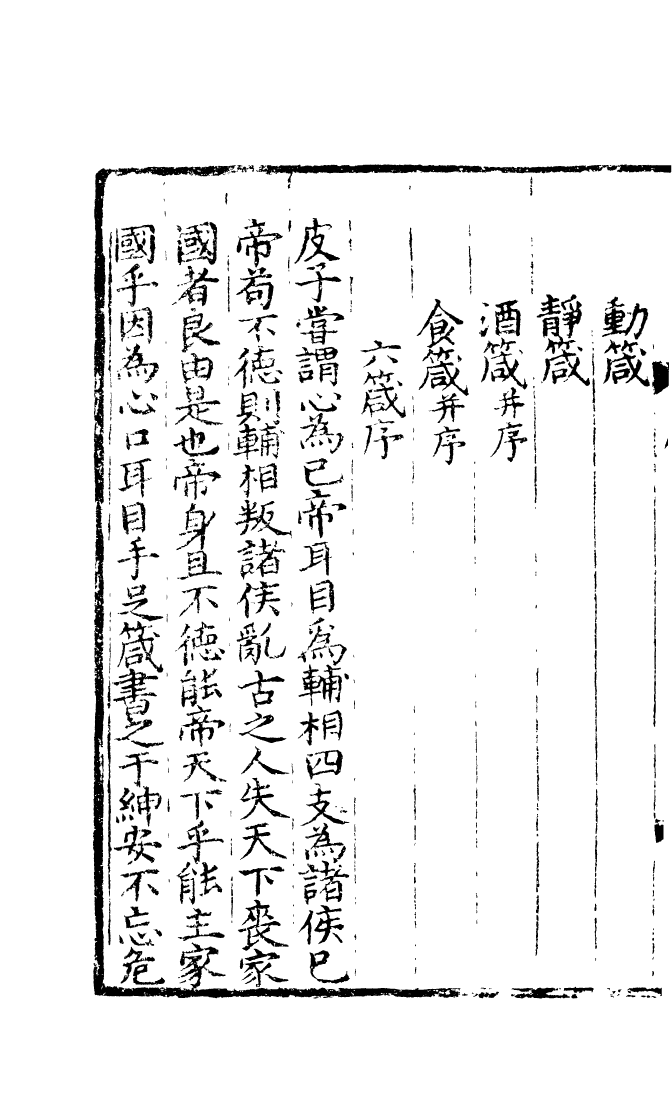 動箴
靜箴
酒箴并序
食箴并序
六箴序
皮子嘗謂心為已帝耳目為輔相四支為諸侯已
帝苟不德則輔相叛諸侯亂古之人失天下喪家
國者良由是也帝身且不德能帝天下乎能主家
國乎因為心口耳目手足箴書之于紳安不忘危